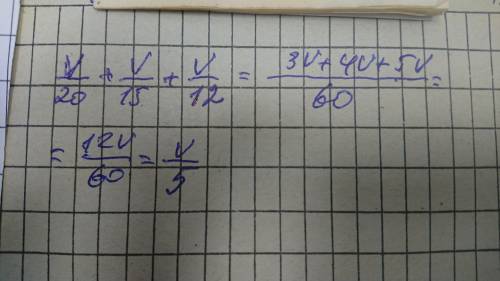 V/20 + V/15 + V/12 = (3V+4V+5V)/60 =
= 12V/60 = V/5